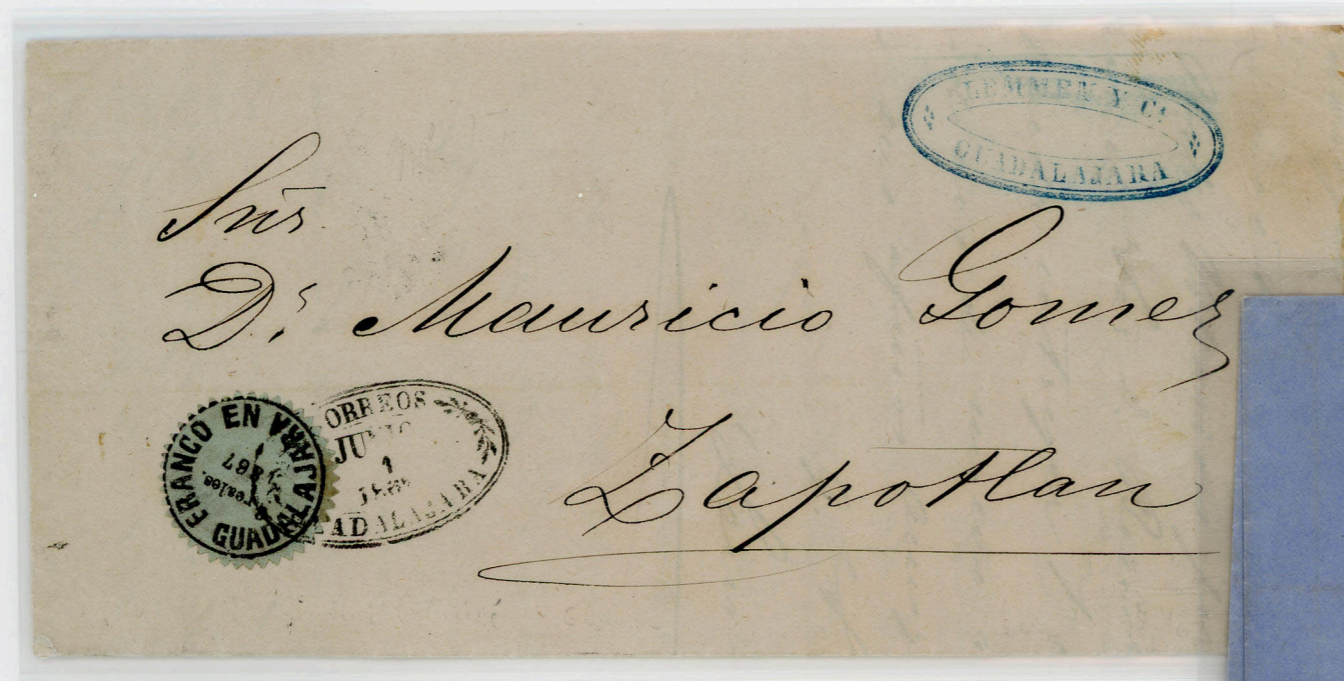 LEMMEN Y Cª
GUADALAJARA
Sñr
Dn Mauricio Gomez
Zapotlan
FRANCO EN
GUADALAJARA
reales
867
CORREOS
JUNIO
1
GUADALAJARA